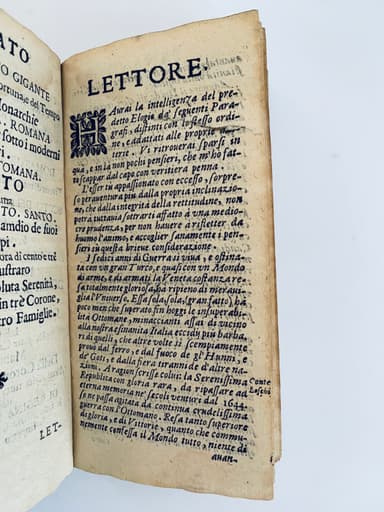 ATO
O GIGANTE
ortunaje del Tempo
Monarchie
. ROMANA
sotto i moderni
ri.
TOMANA.
TO
ma
TO. SANTO.
amdio de suoi
pi.
ora di cento e trè
ustraro
oluta Serenità,
in trè Corone,
tro Famiglie.
LET-
LETTORE.
HAurai la intelligenza del pre-
detto Elogio da' seguenti Para-
grafi, distinti con lo stesso ordi-
ne, e adattati alle proprie
terie. Vi ritrouerai sparsi in
quà, e in là non pochi pensieri, che m'hò fat-
ti scappar dal capo con veritiera penna.
L'esser tu appassionato con eccesso, sorpre-
so perauentura più dalla propria inclinazio-
ne, che dalla integrità della rettitudine, non
potrà tuttauia sottrarti affatto à una medio-
cre prudenza, per non hauere à rifletter da
huomo l'animo, e accoglier sanamente i pen-
sieri in questa brieue considerazione.
I sedici anni di Guerra sì viua, e ostina-
ta con vn gran Turco, e quasi con vn Mondo
di arme, e di armati la Veneta costanza re-
sa totalmente gloriosa, hà ripieno di merau-
glia l'Vniuerso. Essa sola, sola, (gran fatto) hà
poco men che superato fin hoggi le insuperabi-
lità Ottomane, minaccianti assai di vicino
alla nostra esinanita Italia eccidij più barba-
ri di quelli, che altre volte sì scempiamente
prouò dal ferro, e dal fuoco de gl' Hunni, e
de' Goti, e dalla fiera tirannide d'altre na-
zioni. A ragion scrisse colui: la Serenissima
Republica con gloria rara, da ripassare ad
eterna memoria ne' secoli venturi dal 1644.
se ne passa agitata da continua crudelissima
guerra con l'Ottomano. Resa tanto superiore
di gloria, e di Vittorie, quanto che commu-
nemente confessa il Mondo tutto, niente di
Conte
Loschi
auan-